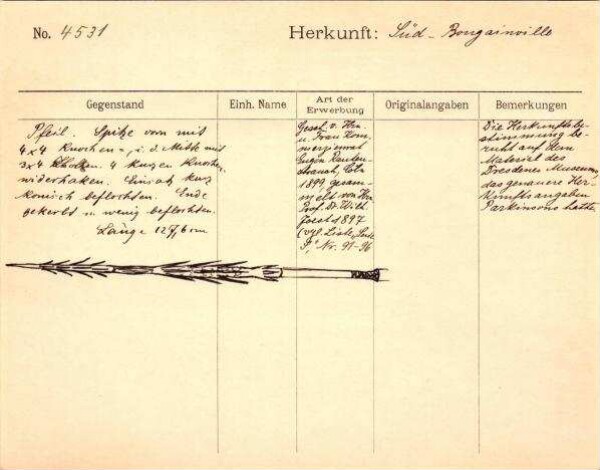 No. 4531
Herkunft: Süd-Bougainville
Gegenstand
Einh. Name
Art der
Erwerbung
Originalangaben
Bemerkungen
Pfeil. Spitze vorn mit
4x4 Knochen-, i. d. Mitte mit
3x4 4 kurzen Knochen
widerhaken. Einsatz kurz
konisch beflochten. Ende
gekerbt u. wenig beflochten.
Länge 127,6 cm
Gesch. v. Hrn
u. Frau Kom-
merzienrat
Eugen Rauten-
strauch, Cöln
1899 gesam-
melt von Hrn
Prof. Dr. Wilh.
Joest 1897
(vgl. Liste
Nr. 91-96
Die Herkunftsbe-
stimmung be-
ruht auf dem
Material des
Dresdener Museums,
das genauere Her-
kunftsangaben
Parkinsons hatte.